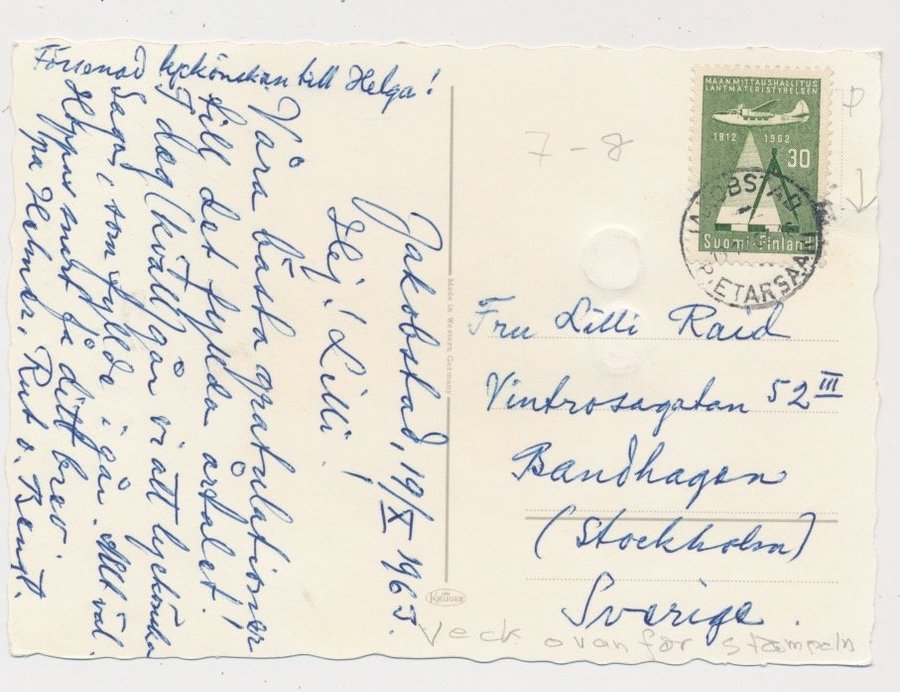 Försenad lyckönskan till Helga!
Jakobstad, 19/X 1963.
Hej, Lilli!
Våra bästa gratulationer
till det fyllda årtalet!
I dag (kväll går vi att lyckönska
Saga, som fyllde i går. Allt väl.
Hoppas snart få ditt brev
Helmer, Rut o. Bengt.
Made in Western Germany
KRÜGER
7-8
MAANMITTAUSHALLITUS
LANTMÄTERISTYRELSEN
1812 1962
30
Suomi-Finland
JAKOBSTAD
PIETARSAARI
Fru Lilli Raid
Vintrosagatan 52 III
Bandhagen
(Stockholm)
Sverige.
veck ovanför stämpeln